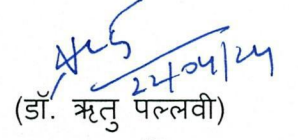 22/04/24
(डॉ. ऋतु पल्लवी)